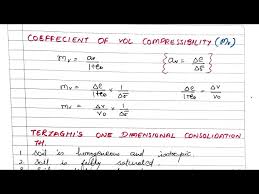 COEFFECIENT OF VOL COMPRESSIBILITY (mv)
mv = av / 1+e0 { av = Δe / Δσ̄ }
mv = Δe / 1+e0 × 1 / Δσ̄ Δe / 1+e0 = Δv / v0
mv = Δv / v0 × 1 / Δσ̄
TERZAGHI'S ONE DIMENSIONAL CONSOLIDATION
TH.
1. Soil is homogeneous and isotropic.
2. Soil is fully saturated.